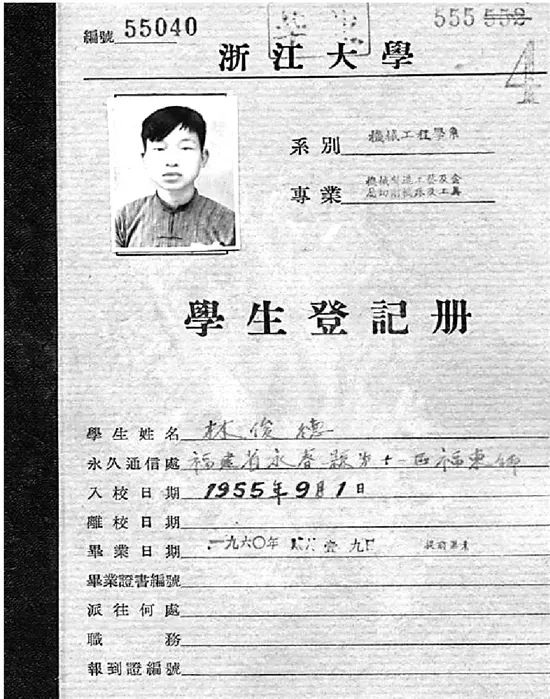 編號 55040
畢業
555 552
4
浙江大學
系別 機械工程學系
專業 機械製造工藝及金
屬切削機床及工具
學生登記册
學生姓名 林俊德
永久通信處 福建省永春縣第十一區福東鄉
入校日期 1955年9月1日
離校日期
畢業日期 一九六〇年 月壹九日 提前畢業
畢業證書編號
派往何處
職務
報到證編號